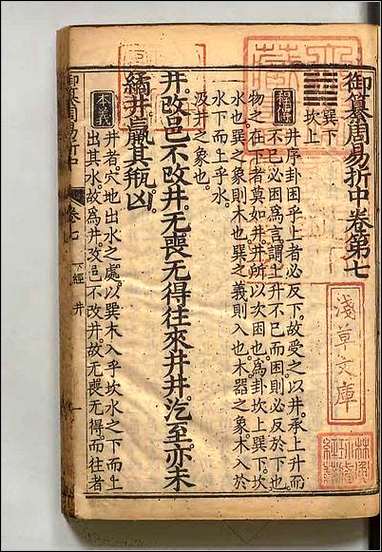 御纂周易折中卷第七
巽下
坎上
程傳
井序卦困乎上者必反下。故受之以井。承上升而
不已必困爲言。謂上升不已而困。則必反於下也。
物之在下者莫如井。井所以次困也。爲卦坎上巽下。坎
水也。巽之象則木也。巽之義則入也。木器之象。木入於
水下而上乎水。
汲井之象也。
井。改邑不改井。无喪无得。往來井井。汔至。亦未
繘井。羸其瓶。凶。
本義
井者。穴地出水之處。以巽木入乎坎水之下。而上
出其水。故爲井。改邑不改井。故无喪无得。而往者
御纂周易折中 卷七 下經 井 一
淺草文庫